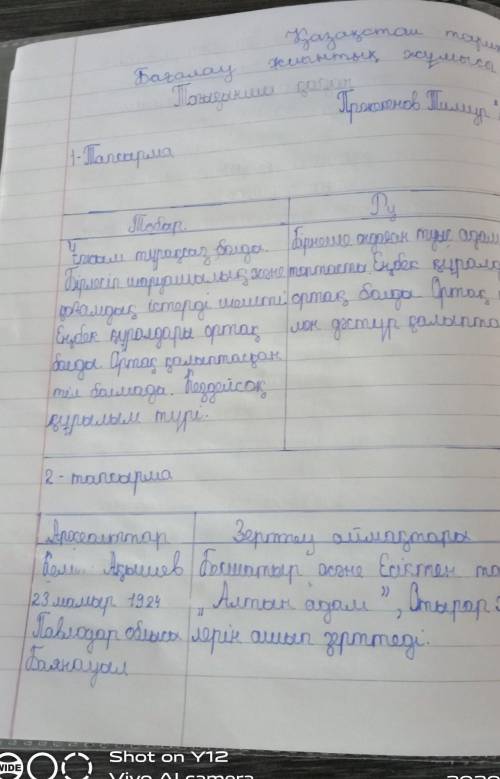 Қазақстан тари
Бағалау жиынтық жұмысы
Тоқсанына
Тимур
1-Тапсырма
Тобыр
Ру
Ұжым тұрақсыз болды.
Бірлесіп шаруашылық және
қоғамдық істерді шешті
Еңбек құралдары ортақ
болды. Ортақ қалыптасқан
тіл болмады. Кездейсоқ
құрылым түрі.
Бірнеше ондаған туыс адам
топтасты Еңбек құралда
ортақ болды Ортақ
мен дәстүр қалыпта
2-тапсырма
Археолттар
Зерттеу аймақтары
Кемі Ақышев
23 мамыр 1924
Павлодар облысы
Баянауыл
Бесшатыр және Есіктен та
„Алтын адам", Отырар
лерін ашып зерттеді.
Shot on Y12
Vivo AI camera